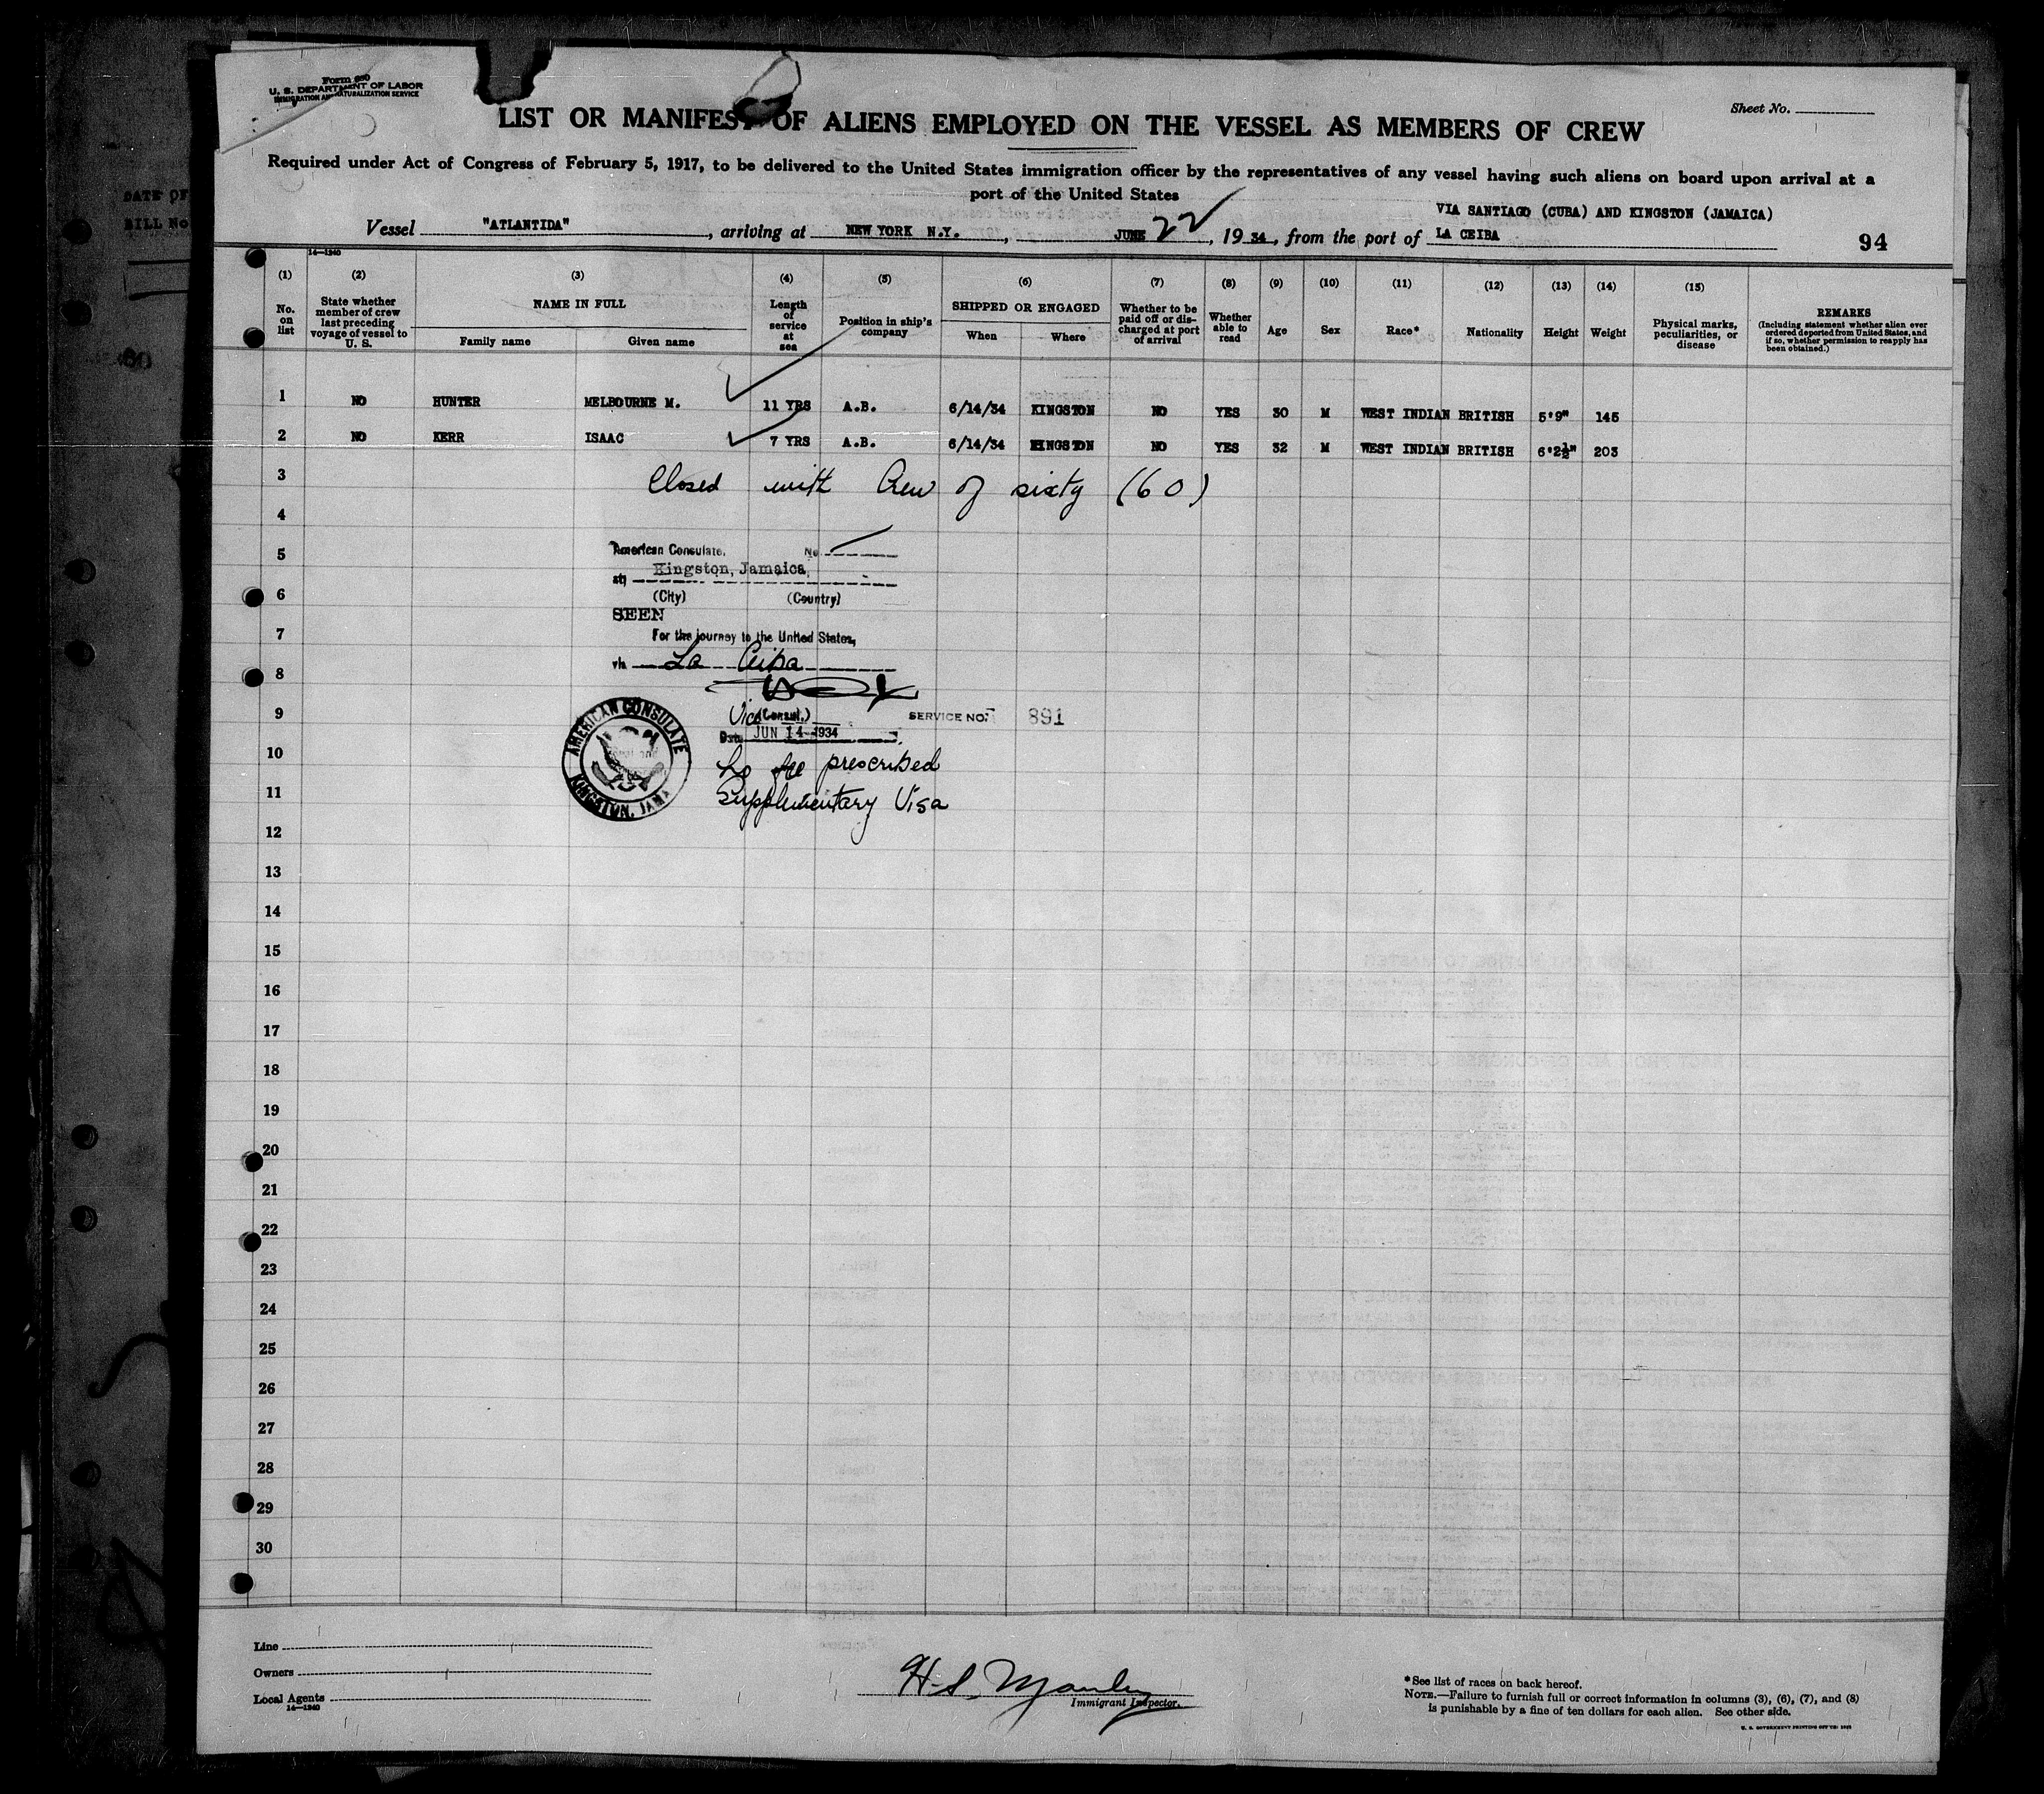 Form 680
U. S. DEPARTMENT OF LABOR
IMMIGRATION AND NATURALIZATION SERVICE
Sheet No.
LIST OR MANIFEST OF ALIENS EMPLOYED ON THE VESSEL AS MEMBERS OF CREW
Required under Act of Congress of February 5, 1917, to be delivered to the United States immigration officer by the representatives of any vessel having such aliens on board upon arrival at a
port of the United States
VIA SANTIAGO (CUBA) AND KINGSTON (JAMAICA)
Vessel "ATLANTIDA", arriving at NEW YORK N.Y., JUNE 22, 1934, from the port of LA CEIBA
94
DATE OF
BILL No
14—1240
(1) (2) (3) (4) (5) (6) (7) (8) (9) (10) (11) (12) (13) (14) (15)
No. on list
State whether member of crew last preceding voyage of vessel to U. S.
NAME IN FULL
Family name
Given name
Length of service at sea
Position in ship's company
SHIPPED OR ENGAGED
When
Where
Whether to be paid off or discharged at port of arrival
Whether able to read
Age
Sex
Race*
Nationality
Height
Weight
Physical marks, peculiarities, or disease
REMARKS
(Including statement whether alien ever ordered deported from United States, and if so, whether permission to reapply has been obtained.)
1 NO HUNTER MELBOURNE M. 11 YRS A.B. 6/14/34 KINGSTON NO YES 30 M WEST INDIAN BRITISH 5'9" 145
2 NO KERR ISAAC 7 YRS A.B. 6/14/34 KINGSTON NO YES 32 M WEST INDIAN BRITISH 6'2½" 203
3 Closed with Crew of sixty (60)
4
5 American Consulate, No
at Kingston, Jamaica
6 (City) (Country)
SEEN
7 For the journey to the United States,
via La Ceiba
8
9 Vice (Consul.) SERVICE NO. 891
Date JUN 14 1934
AMERICAN CONSULATE
KINGSTON, JAMA
10 No fee prescribed
11 Supplementary Visa
12
13
14
15
16
17
18
19
20
21
22
23
24
25
26
27
28
29
30
Line
Owners
Local Agents
14—1240
H. S. Manley
Immigrant Inspector.
*See list of races on back hereof.
NOTE.—Failure to furnish full or correct information in columns (3), (6), (7), and (8)
is punishable by a fine of ten dollars for each alien. See other side.